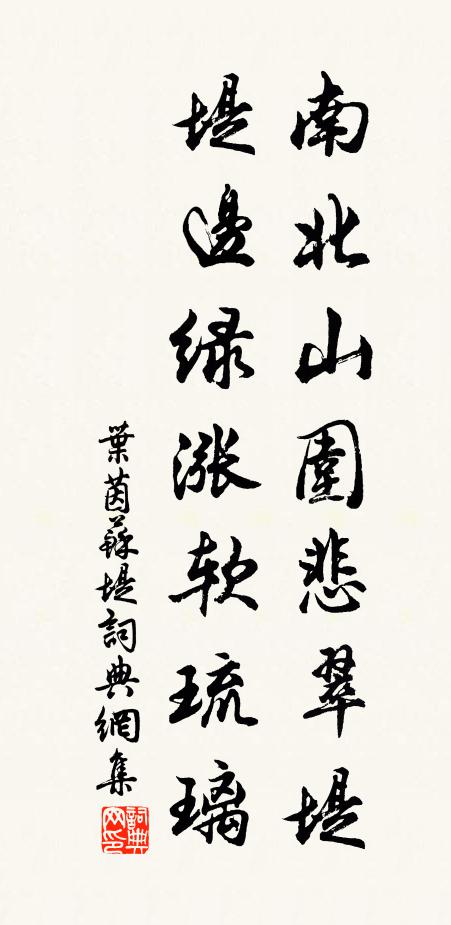 南北山圍悲翠堤
堤邊绿漲软琉璃
葉茵蘇堤詞典網集
詞典网印